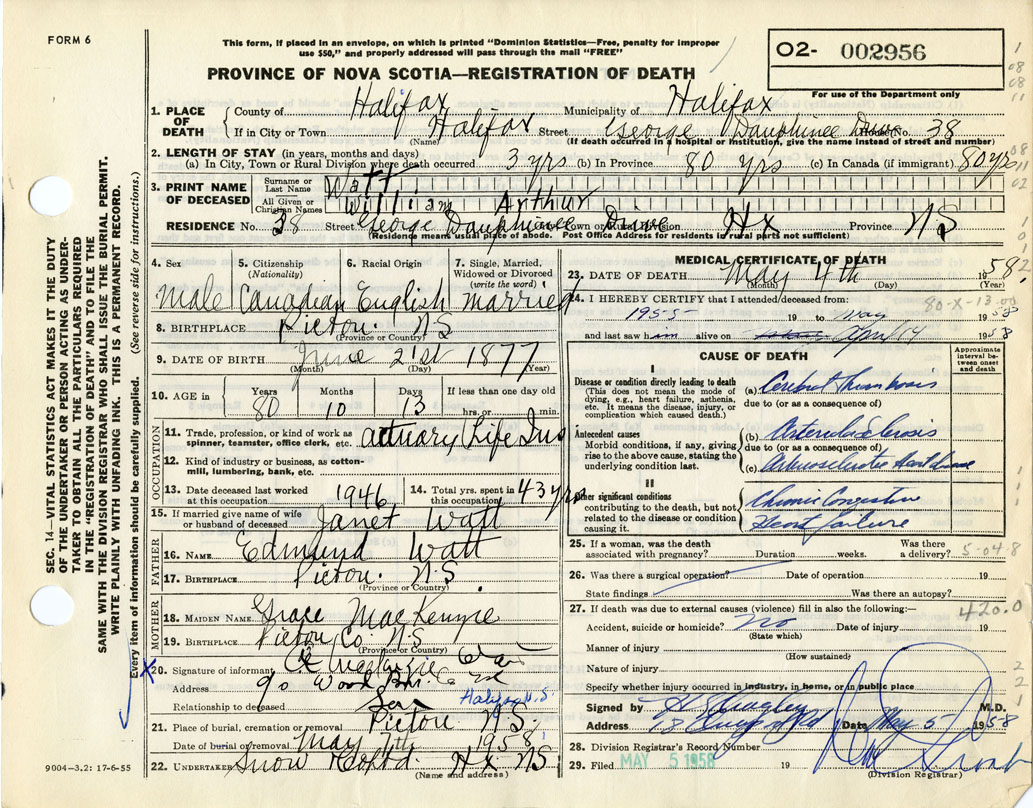 FORM 6
This form, if placed in an envelope, on which is printed "Dominion Statistics—Free, penalty for improper
use $50," and properly addressed will pass through the mail "FREE"
02- 002956
For use of the Department only
PROVINCE OF NOVA SCOTIA—REGISTRATION OF DEATH
1. PLACE OF DEATH { County of Halifax Municipality of Halifax
If in City or Town Halifax Street George Dauphinee House No. 38
(Name) (If death occurred in a hospital or institution, give the name instead of street and number)
2. LENGTH OF STAY (in years, months and days)
(a) In City, Town or Rural Division where death occurred 3 yrs (b) In Province 80 yrs (c) In Canada (if immigrant) 80 yrs
3. PRINT NAME OF DECEASED { Surname or Last Name Watt
All Given or Christian Names William Arthur
RESIDENCE No. 38 Street George Dauphinee Drive Town or Rural Division Hx Province NS
(Residence means usual place of abode. Post Office Address for residents in rural parts not sufficient)
4. Sex 5. Citizenship (Nationality) 6. Racial Origin 7. Single, Married, Widowed or Divorced (write the word)
Male Canadian English married
8. BIRTHPLACE Pictou N S
(Province or Country)
9. DATE OF BIRTH June 21st 1877
(Month) (Day) (Year)
10. AGE in { Years 80 Months 10 Days 13 If less than one day old hrs. or min.
OCCUPATION
11. Trade, profession, or kind of work as spinner, teamster, office clerk, etc. actuary Life Ins
12. Kind of industry or business, as cotton-mill, lumbering, bank, etc.
13. Date deceased last worked at this occupation 1946 14. Total yrs. spent in this occupation 43 yrs
15. If married give name of wife or husband of deceased Janet Watt
FATHER
16. NAME Edmund Watt
17. BIRTHPLACE Pictou N.S.
(Province or Country)
MOTHER
18. MAIDEN NAME Grace MacKenzie
19. BIRTHPLACE Pictou Co. N.S
(Province or Country)
X
20. Signature of informant
Address c/o Wood Bros. Co Ltd
Halifax N.S.
Relationship to deceased Son
21. Place of burial, cremation or removal Pictou N.S.
Date of burial or removal May 7th 1958
22. UNDERTAKER Snow & Co Ltd. Hx NS
(Name and address)
MEDICAL CERTIFICATE OF DEATH
23. DATE OF DEATH May 4th 1958
(Month) (Day)
24. I HEREBY CERTIFY that I attended deceased from:
80-X-13-00
1955 19 to May 1958
and last saw him alive on April 14 1958
CAUSE OF DEATH
Approximate interval between onset and death
I
Disease or condition directly leading to death
(This does not mean the mode of dying, e.g., heart failure, asthenia, etc. It means the disease, injury, or complication which caused death.)
(a) Cerebral Thrombosis
due to (or as a consequence of)
Antecedent causes
Morbid conditions, if any, giving rise to the above cause, stating the underlying condition last.
(b) Arteriosclerosis
due to (or as a consequence of)
(c) Arteriosclerotic Heart Disease
II
Other significant conditions
contributing to the death, but not related to the disease or condition causing it.
Chronic Congestive
Heart failure
25. If a woman, was the death associated with pregnancy? Duration weeks. Was there a delivery?
5-04-8
26. Was there a surgical operation? Date of operation 19
State findings Was there an autopsy?
27. If death was due to external causes (violence) fill in also the following:—
420.0
Accident, suicide or homicide? No Date of injury 19
(State which)
Manner of injury
(How sustained)
Nature of injury
Specify whether injury occurred in industry, in home, or in public place
Signed by M.D.
Address Date May 5 1958
28. Division Registrar's Record Number
29. Filed MAY 5 1958 19
(Division Registrar)
SEC. 14—VITAL STATISTICS ACT MAKES IT THE DUTY
OF THE UNDERTAKER OR PERSON ACTING AS UNDER-
TAKER TO OBTAIN ALL THE PARTICULARS REQUIRED
IN THE "REGISTRATION OF DEATH" AND TO FILE THE
SAME WITH THE DIVISION REGISTRAR WHO SHALL ISSUE THE BURIAL PERMIT.
WRITE PLAINLY WITH UNFADING INK. THIS IS A PERMANENT RECORD.
Every item of information should be carefully supplied. (See reverse side for instructions.)
9004—3.2: 17-6-55